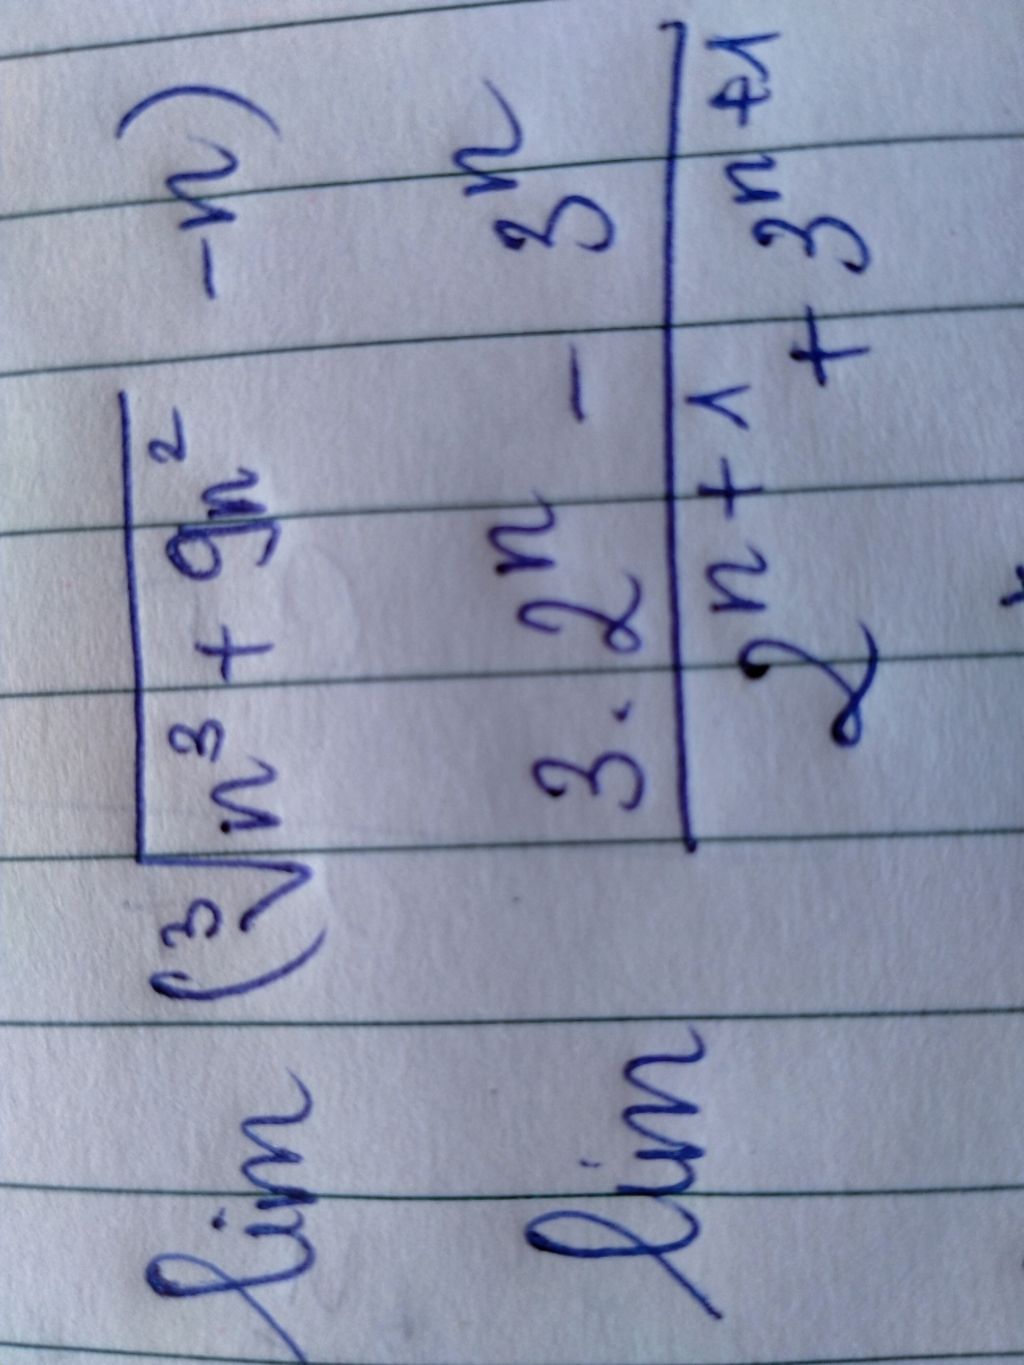 lim (³√(n³ + 9n²) - n)
lim (3 · 2ⁿ - 3ⁿ) / (2ⁿ⁺¹ + 3ⁿ⁺¹)